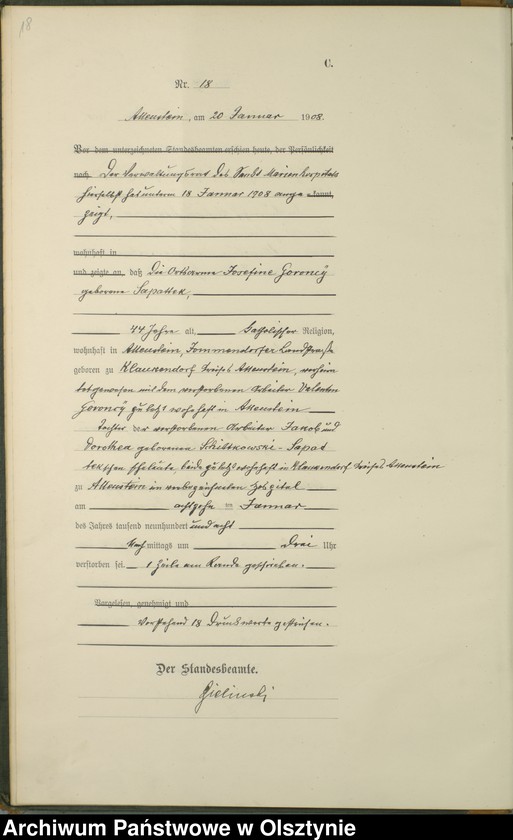 18
C.
Nr. 18
Allenstein, am 20 Januar 1908.
Vor dem unterzeichneten Standesbeamten erschien heute, der Persönlichkeit
nach Der Verwaltungsrat des Sankt Marien Hospitals
hierselbst hat unterm 18 Januar 1908 ange kannt,
zeigt,
wohnhaft in
und zeigte an, daß die Ortsarme Josefine Goroncÿ
geborene Sapattek,
44 Jahre alt, katholischer Religion,
wohnhaft in Allenstein, Jommendorfer Landstraße
geboren zu Klaukendorf Kreises Allenstein, verheira
tet gewesen mit dem verstorbenen Arbeiter Valentin
Goroncÿ zuletzt wohnhaft in Allenstein
Tochter der verstorbenen Arbeiter Jakob und
Dorothea geborenen Schittkowski-Sapat
tekschen Eheleute, beide zuletzt wohnhaft in Klaukendorf Kreises Allenstein
zu Allenstein im vorbezeichneten Hospital
am achtzehn ten Januar
des Jahres tausend neunhundert und acht
Nach mittags um drei Uhr
verstorben sei. 1 Zeile am Rande geschrieben.
Vorgelesen, genehmigt und
Vorstehend 18 Druckworte gestrichen.
Der Standesbeamte.
Zielinski
Archiwum Państwowe w Olsztynie